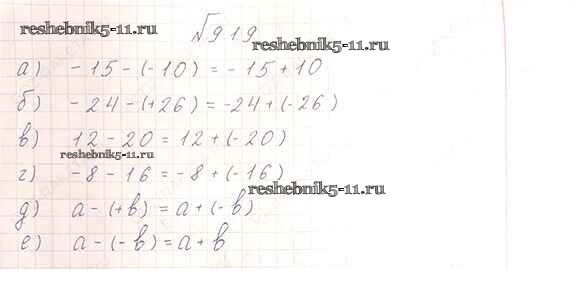 reshebnik5-11.ru
№919
reshebnik5-11.ru
а) -15-(-10) = -15+10
б) -24-(+26) = -24+(-26)
в) 12-20 = 12+(-20)
reshebnik5-11.ru
г) -8-16 = -8+(-16)
reshebnik5-11.ru
д) a-(+b) = a+(-b)
е) a-(-b) = a+b